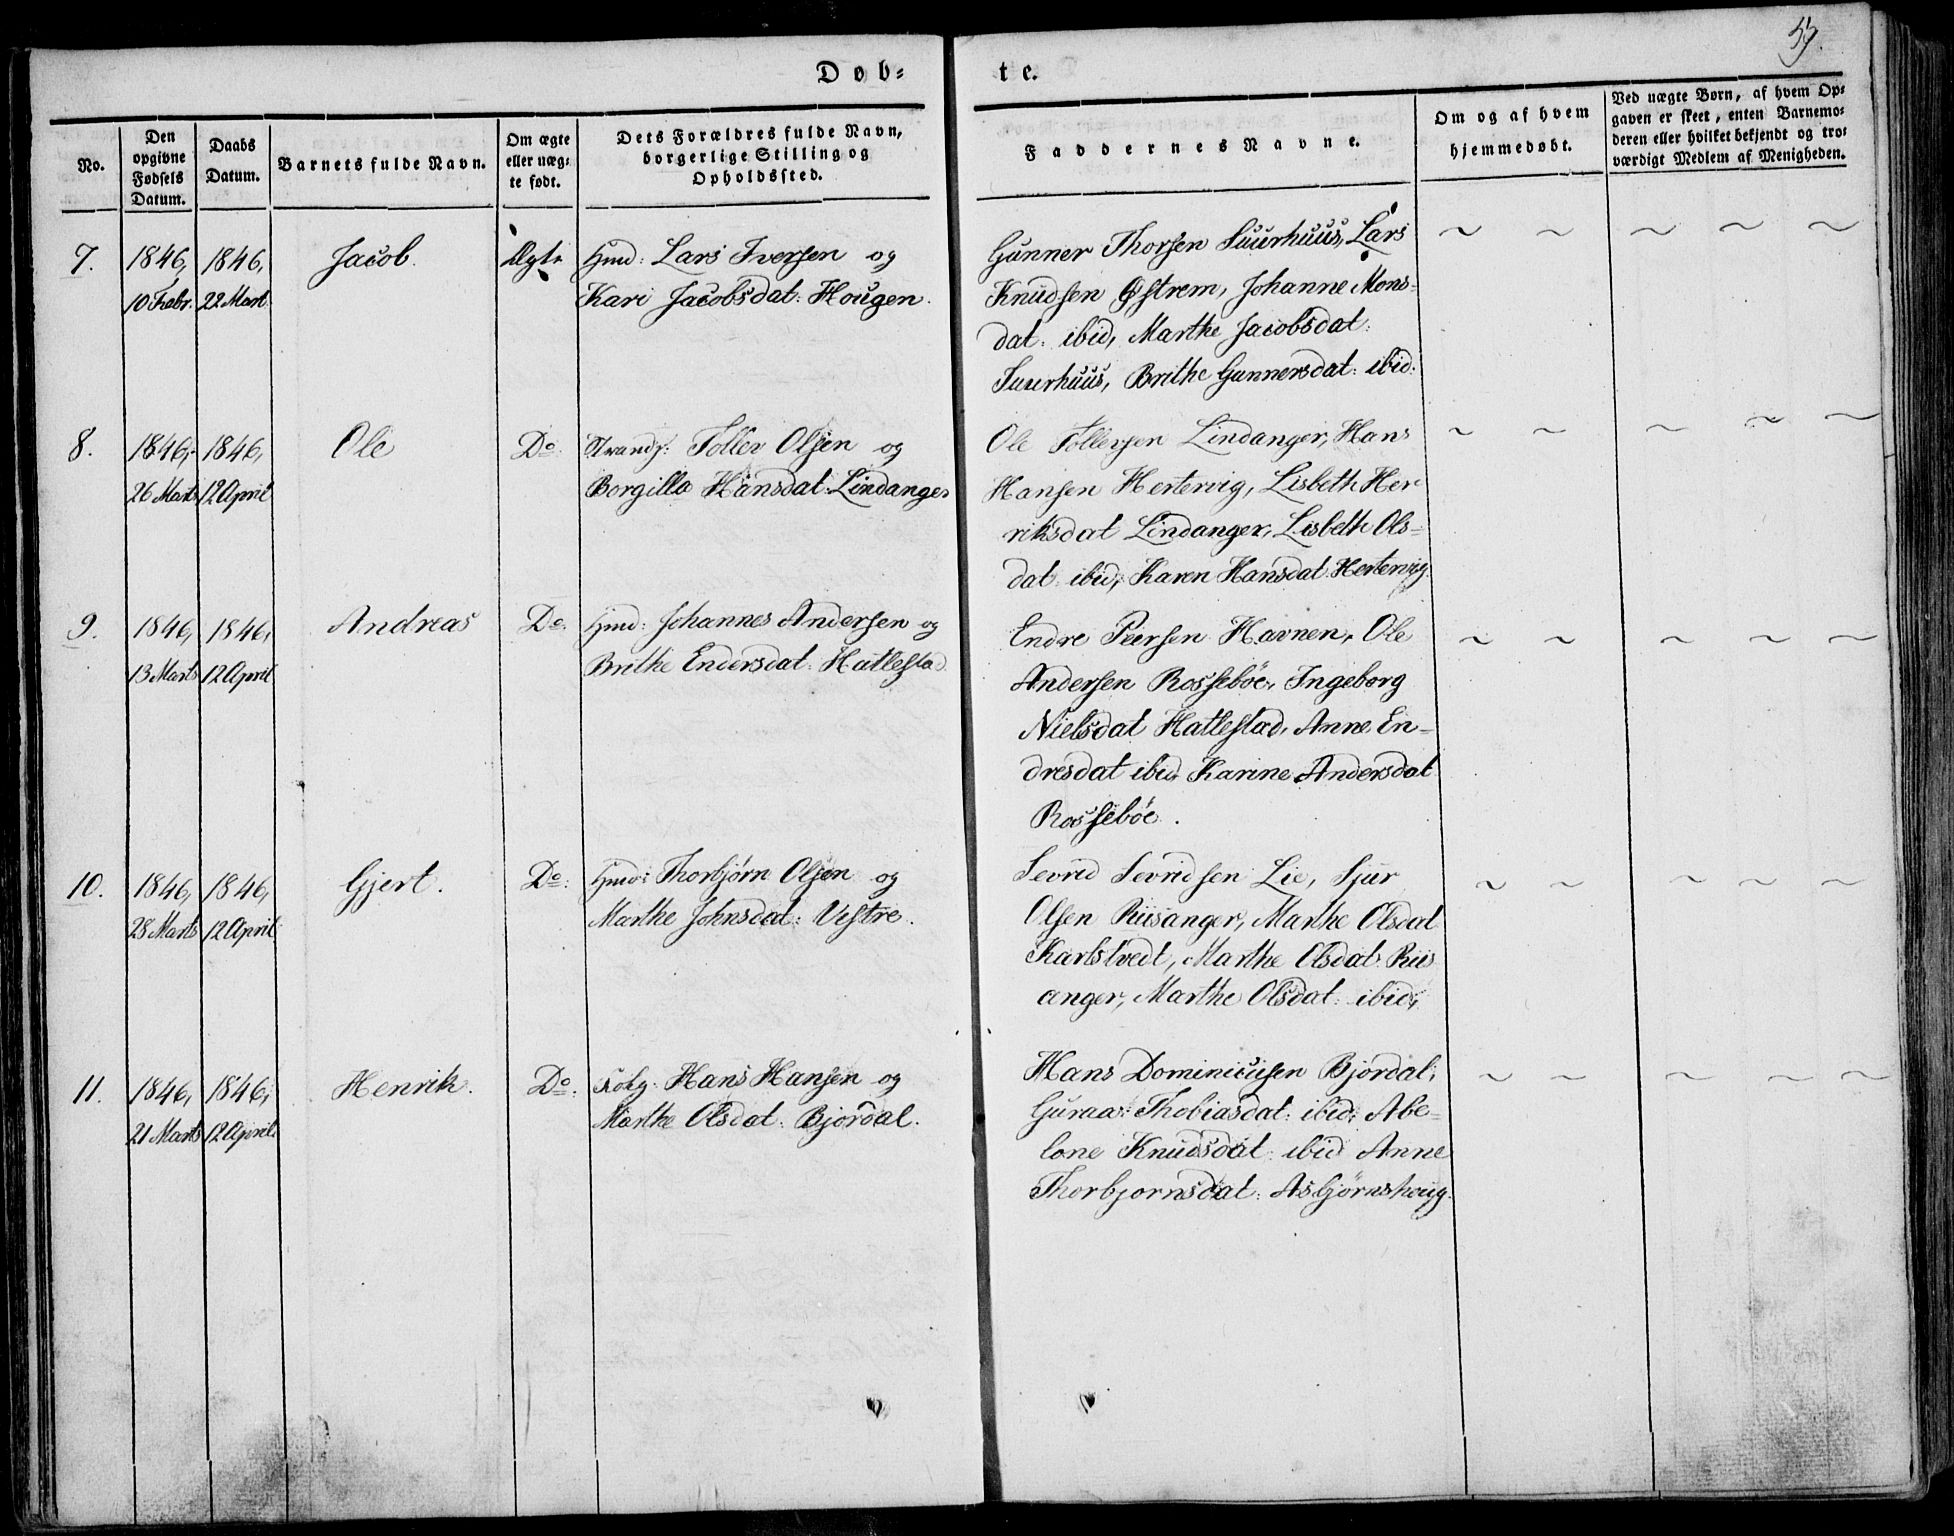 Døb=
te.
59.
No.
Den opgivne Fødsels Datum.
Daabs Datum.
Barnets fulde Navn.
Om ægte eller uæg= te født.
Dets Forældres fulde Navn, borgerlige Stilling og Opholdssted.
Faddernes Navne.
Om og af hvem hjemmedøbt.
Ved uægte Børn, af hvem Op= gaven er skeet, enten Barnemo= deren eller hvilket bekjendt og tro= værdigt Medlem af Menigheden.
7.
1846,
10 Febr.
1846,
22 Mart
Jacob.
Ægte
Gmd: Lars Iversen og
Kari Jacobsdat: Hougen.
Gunner Thorsen Suurhuus, Lars
Knudsen Østrem, Johanne Mons=
dat: ibid, Marthe Jacobsdat:
Suurhuus, Brithe Gunnersdat: ibid:
~ ~ ~ ~ ~
8.
1846,
26 Marts
1846,
12 April
Ole
Do:
Strands: Toller Olsen og
Borgilla Hansdat: Lindanger
Ole Tollersen Lindanger, Hans
Hansen Hertervig, Lisbeth Hen
riksdat Lindanger, Lisbeth Ols=
dat: ibid, Karen Hansdat: Hertervig.
~ ~ ~ ~ ~
9.
1846,
13 Marts
1846,
12 April
Andreas
Do:
Gmd: Johannes Andersen og
Brithe Endersdat: Hatlestad
Endre Peersen Havnen, Ole
Andersen Rossebøe, Ingeborg
Nielsdat Hatlestad, Anne En=
dresdat ibid, Karine Andersdat
Rossebøe.
~ ~ ~ ~ ~
10.
1846,
28 Marts
1846,
12 April
Gjert.
Do:
Gmd: Thorbjørn Olsen og
Marthe Johnsdat: Vestre.
Sevrid Sevridsen Lie, Sjur
Olsen Riisanger, Marthe Olsdat
Karlstvedt, Marthe Olsdat: Riis
anger, Marthe Olsdat: ibid,
~ ~ ~ ~ ~
11.
1846,
21 Marts
1846,
12 April
Henrik.
Do:
Hans Hansen og
Marthe Olsdat: Bjordal.
Hans Dominicusen Bjordal,
Guraa: Thobiasdat: ibid, Abe=
lone Knudsdat: ibid Anne
Thorbjornsdat: Asbjørnshoug.
~ ~ ~ ~ ~